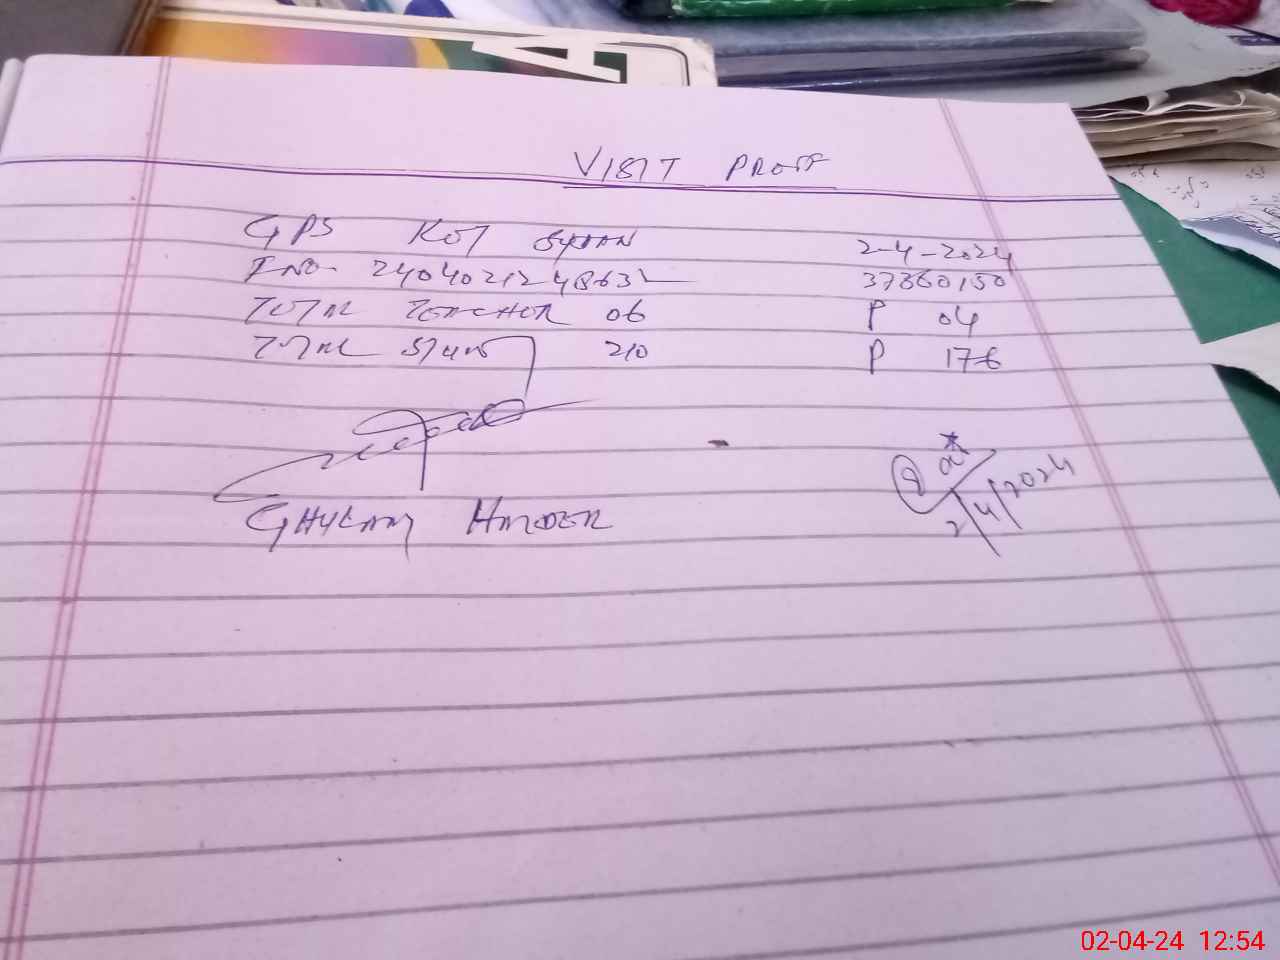 A
VISIT PROFF
GPS KOT 2-4-2024
INO. 2404021248632 37360150
TOTAL TEACHER 06 P 04
TOTAL STUNT 210 P 176
2/4/2024
GHULAM HAIDER
02-04-24 12:54